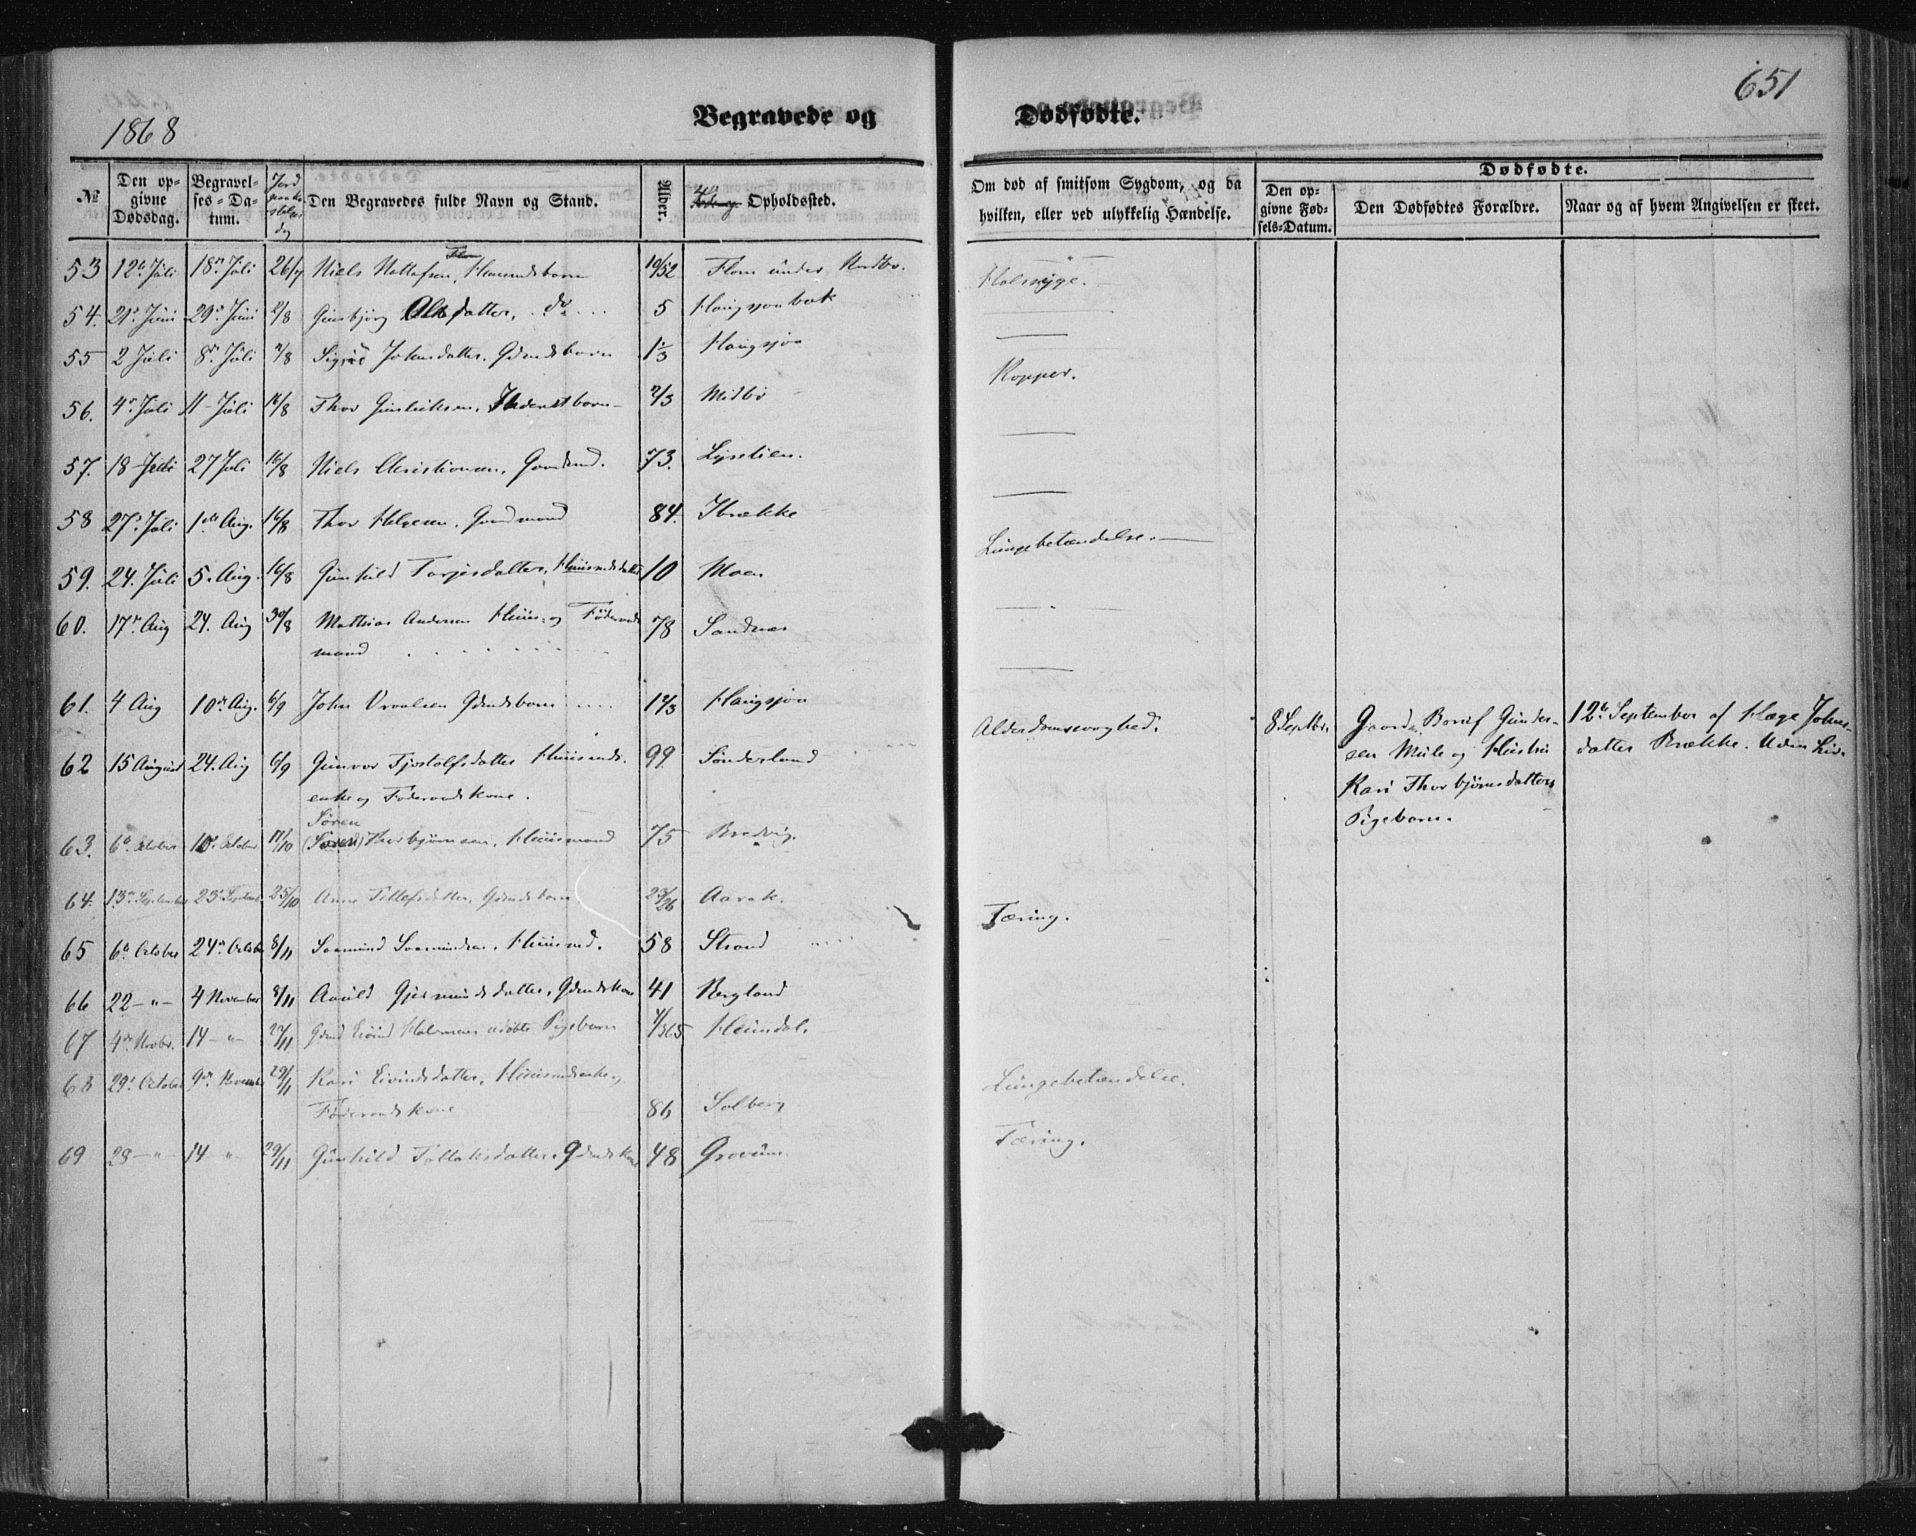 1868
Begravede og
Dødfødte.
651
№
Den opgivne Dødsdag.
Begravelses-Datum.
Den Begravedes fulde Navn og Stand.
Alder.
Opholdssted.
Om død af smitsom Sygdom, og da hvilken, eller ved ulykkelig Hændelse.
Dødfødte.
Den opgivne Fødsels-Datum.
Den Dødfødtes Forældre.
Naar og af hvem Angivelsen er skeet.
53 12te Juli 18de Juli 26/7 Niels 10/52 Flom under Halssyge.
54. 21de Juni 29de Juni 2/8 Gunbjørg Olsdatter, do 5 Haugsjaabak
55 2 Juli 8de Juli 2/8 Sigrid Johnsdatter. Gdmdsbarn 1 1/3 Haugsjaa Kopper.
56. 4de Juli 11 Juli 16/8 Thor Gunleiksen, 2/3 Midbø
57. 18 Juli 27 Juli 16/8 Niels Christiansen, Gaardmd. 73. Lyselien.
58 27de Juli 1ste Aug. 16/8 Thor Helgesen, Gaardmand 84. Brække Lungebetændelse.
59. 24. Juli 5. Aug. 16/8 Gunhild Torjusdatter, Huusmdsdatter 10 Moen
60. 17de Aug 24. Aug 30/8 Mathias Andersen Huus- og Føderaads
mand 78 Sandnes
61. 4 Aug 10de Aug. 6/9 John Vraalsen Gdmdsbarn 1 2/3 Haugsjaa
Alderdomssvaghed.
8 Septbr. Gaardm. Gunder-
sen Mule og Hustru
Kari Thorbjørnsdatters
Pigebarn.
12te September af Hæge Johns-
datter Brække. Uden Liv.
62 15 August 24. Aug 6/9 Gunvor Tjostolfsdatter Huusmds.
enke og Føderaadskone. 99 Sønderland
Søren
63. 6te October 10de October 11/10 (Søren) Thorbjørnsen, Huusmand 75 Bredvig.
64. 13de September 23de Septemb. 25/10 Anne Tellefsdatter, Gdmdsbarn 23/26 Aarak. Tæring.
65 6te October 24de Octobr 8/11 Saamund Saamundsen, Huusmd. 58 Strand
66 22 — " — 4 November 8/11 Aasild Gjermundsdatter, Gdmdskone 41 Bergland
67 4de Novbr. 14 — " — 29/11 Gdmd Eivind Halvorsens udøbte Pigebarn 4/365 Heimdal.
68 29de October 9de November 29/11 Kari Eivindsdatter, Huusmdsenke og
Føderaadskone 86 Solberg Lungebetændelse.
69 28 — " — 14 " 29/11 Gunhild Tollaksdatter, Gdmdskone 48 Grovum. Tæring.